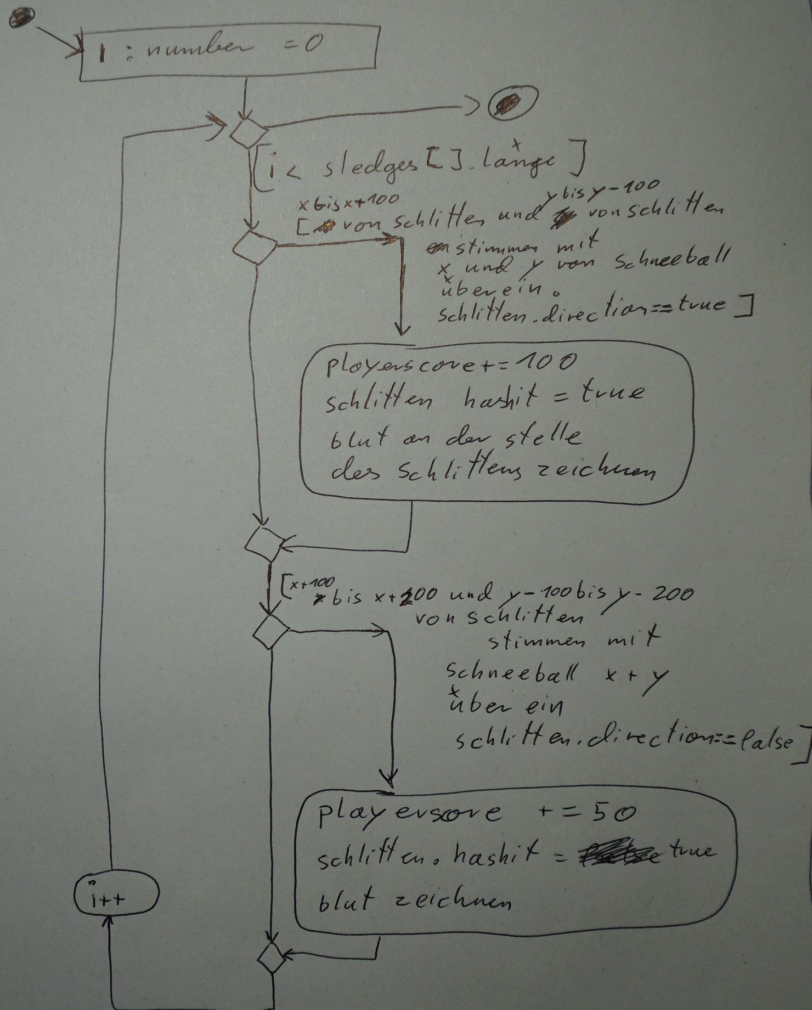 i : number = 0
[i < sledges [].länge]
x bis x+100 y bis y-100
[ von schlitten und von schlitten
stimmen mit
x und y von schneeball
überein.
schlitten.direction==true]
playerscore+=100
schlitten hashit = true
blut an der stelle
des schlittens zeichnen
[x+100
bis x+200 und y-100 bis y-200
von schlitten
stimmen mit
schneeball x+y
überein
schlitten.direction==false]
playersore +=50
schlitten.hashit = true
blut zeichnen
i++